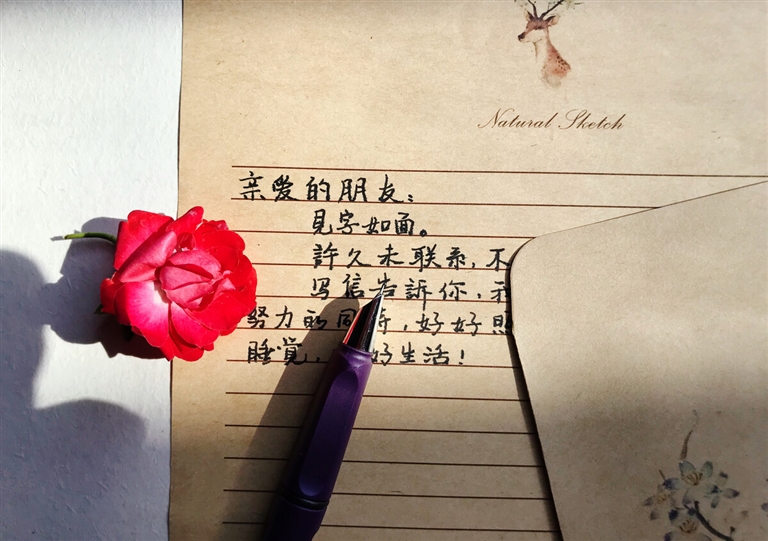 Natural Sketch
亲爱的朋友：
見字如面。
許久未联系，不
写信告訴你，
努力的同時，好好照
睡覺，好生活！